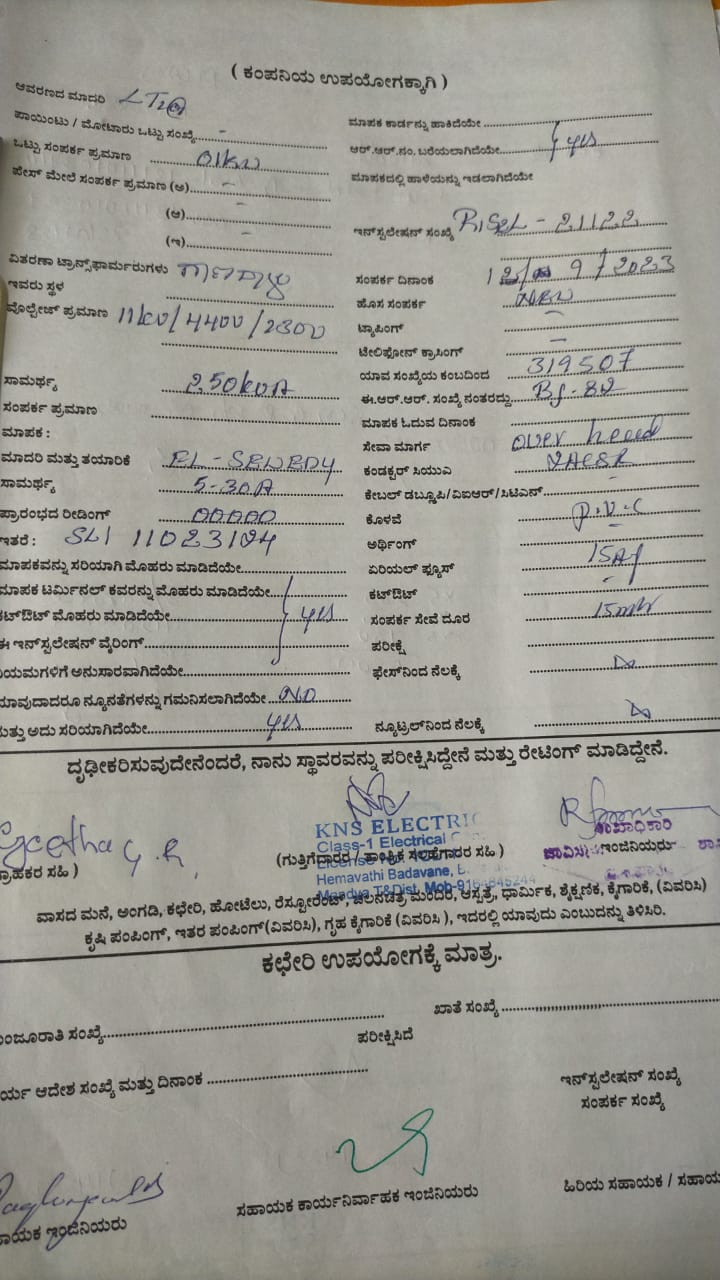 ( ಕಂಪನಿಯ ಉಪಯೋಗಕ್ಕಾಗಿ )
ಆವರಣದ ಮಾದರಿ LT2
ಪಾಯಿಂಟು / ಮೋಟಾರು ಒಟ್ಟು ಸಂಖ್ಯೆ -
ಒಟ್ಟು ಸಂಪರ್ಕ ಪ್ರಮಾಣ 01KW
ಪೇಸ್ ಮೇಲೆ ಸಂಪರ್ಕ ಪ್ರಮಾಣ (ಅ) -
(ಆ) -
(ಇ) -
ವಿತರಣಾ ಟ್ರಾನ್ಸ್‌ಫಾರ್ಮರುಗಳು
ಇವರು ಸ್ಥಳ
ವೊಲ್ಟೇಜ್ ಪ್ರಮಾಣ 11KV/4400/2300
ಸಾಮರ್ಥ್ಯ 250KVA
ಸಂಪರ್ಕ ಪ್ರಮಾಣ
ಮಾಪಕ :
ಮಾದರಿ ಮತ್ತು ತಯಾರಿಕೆ EL-SEWEDY
ಸಾಮರ್ಥ್ಯ 5-30A
ಪ್ರಾರಂಭದ ರೀಡಿಂಗ್ 00000
ಇತರೆ : SL1 11023104
ಮಾಪಕವನ್ನು ಸರಿಯಾಗಿ ಮೊಹರು ಮಾಡಿದೆಯೇ
ಮಾಪಕ ಟರ್ಮಿನಲ್ ಕವರನ್ನು ಮೊಹರು ಮಾಡಿದೆಯೇ
ಕಟ್‌ಔಟ್ ಮೊಹರು ಮಾಡಿದೆಯೇ yes
ಈ ಇನ್‌ಸ್ಪಲೇಷನ್ ವೈರಿಂಗ್
ನಿಯಮಗಳಿಗೆ ಅನುಸಾರವಾಗಿದೆಯೇ
ಯಾವುದಾದರೂ ನ್ಯೂನತೆಗಳನ್ನು ಗಮನಿಸಲಾಗಿದೆಯೇ NO
ಮತ್ತು ಅದು ಸರಿಯಾಗಿದೆಯೇ yes
ಮಾಪಕ ಕಾರ್ಡನ್ನು ಹಾಕಿದೆಯೇ
ಆರ್.ಆರ್.ನಂ. ಬರೆಯಲಾಗಿದೆಯೇ yes
ಮಾಪಕದಲ್ಲಿ ಹಾಳೆಯನ್ನು ಇಡಲಾಗಿದೆಯೇ
ಇನ್‌ಸ್ಪಲೇಷನ್ ಸಂಖ್ಯೆ - 21122
ಸಂಪರ್ಕ ದಿನಾಂಕ 9/2023
ಹೊಸ ಸಂಪರ್ಕ NEW
ಟ್ಯಾಪಿಂಗ್ -
ಟೇಲಿಫೋನ್ ಕ್ರಾಸಿಂಗ್ -
ಯಾವ ಸಂಖ್ಯೆಯ ಕಂಬದಿಂದ 319507
ಈ.ಆರ್.ಆರ್. ಸಂಖ್ಯೆ ನಂತರದ್ದು
ಮಾಪಕ ಓದುವ ದಿನಾಂಕ
ಸೇವಾ ಮಾರ್ಗ over head
ಕಂಡಕ್ಟರ್ ಸಿಯುವಿ
ಕೇಬಲ್ ಡಬ್ಲೂಪಿ/ವಿಐಆರ್/ಸಿಟಿಎನ್ -
ಕೊಳವೆ P.V.C
ಅರ್ಥಿಂಗ್ -
ಏರಿಯಲ್ ಫ್ಯೂಸ್
ಕಟ್‌ಔಟ್ -
ಸಂಪರ್ಕ ಸೇವೆ ದೂರ
ಪರೀಕ್ಷೆ
ಫೇಸ್‌ನಿಂದ ನೆಲಕ್ಕೆ
ನ್ಯೂಟ್ರಲ್‌ನಿಂದ ನೆಲಕ್ಕೆ
ದೃಢೀಕರಿಸುವುದೇನೆಂದರೆ, ನಾನು ಸ್ಥಾವರವನ್ನು ಪರೀಕ್ಷಿಸಿದ್ದೇನೆ ಮತ್ತು ರೇಟಿಂಗ್ ಮಾಡಿದ್ದೇನೆ.
Geetha G.R.
KNS ELECTRIC
Class-1 Electrical
Hemavathi Badavane,
Mandya T&Dist,
ಗ್ರಾಹಕರ ಸಹಿ )
(ಗುತ್ತಿಗೆದಾರರ / ತಾಂತ್ರಿಕ ಸಲಹೆಗಾರರ ಸಹಿ )
ಶಾಖಾಧಿಕಾರಿ
ಇಂಜಿನಿಯರು
ವಾಸದ ಮನೆ, ಅಂಗಡಿ, ಕಛೇರಿ, ಹೋಟೆಲು, ರೆಸ್ಟೋರೆಂಟ್, ಚಲನಚಿತ್ರ ಮಂದಿರ, ಆಸ್ಪತ್ರೆ, ಧಾರ್ಮಿಕ, ಶೈಕ್ಷಣಿಕ, ಕೈಗಾರಿಕೆ, (ವಿವರಿಸಿ)
ಕೃಷಿ ಪಂಪಿಂಗ್, ಇತರ ಪಂಪಿಂಗ್ (ವಿವರಿಸಿ), ಗೃಹ ಕೈಗಾರಿಕೆ (ವಿವರಿಸಿ ), ಇದರಲ್ಲಿ ಯಾವುದು ಎಂಬುದನ್ನು ತಿಳಿಸಿರಿ.
ಕಛೇರಿ ಉಪಯೋಗಕ್ಕೆ ಮಾತ್ರ.
ಮಂಜೂರಾತಿ ಸಂಖ್ಯೆ
ಖಾತೆ ಸಂಖ್ಯೆ
ಪರೀಕ್ಷಿಸಿದೆ
ಕಾರ್ಯ ಆದೇಶ ಸಂಖ್ಯೆ ಮತ್ತು ದಿನಾಂಕ
ಇನ್‌ಸ್ಪಲೇಷನ್ ಸಂಖ್ಯೆ
ಸಂಪರ್ಕ ಸಂಖ್ಯೆ
ಸಹಾಯಕ ಇಂಜಿನಿಯರು
ಸಹಾಯಕ ಕಾರ್ಯನಿರ್ವಾಹಕ ಇಂಜಿನಿಯರು
ಹಿರಿಯ ಸಹಾಯಕ /